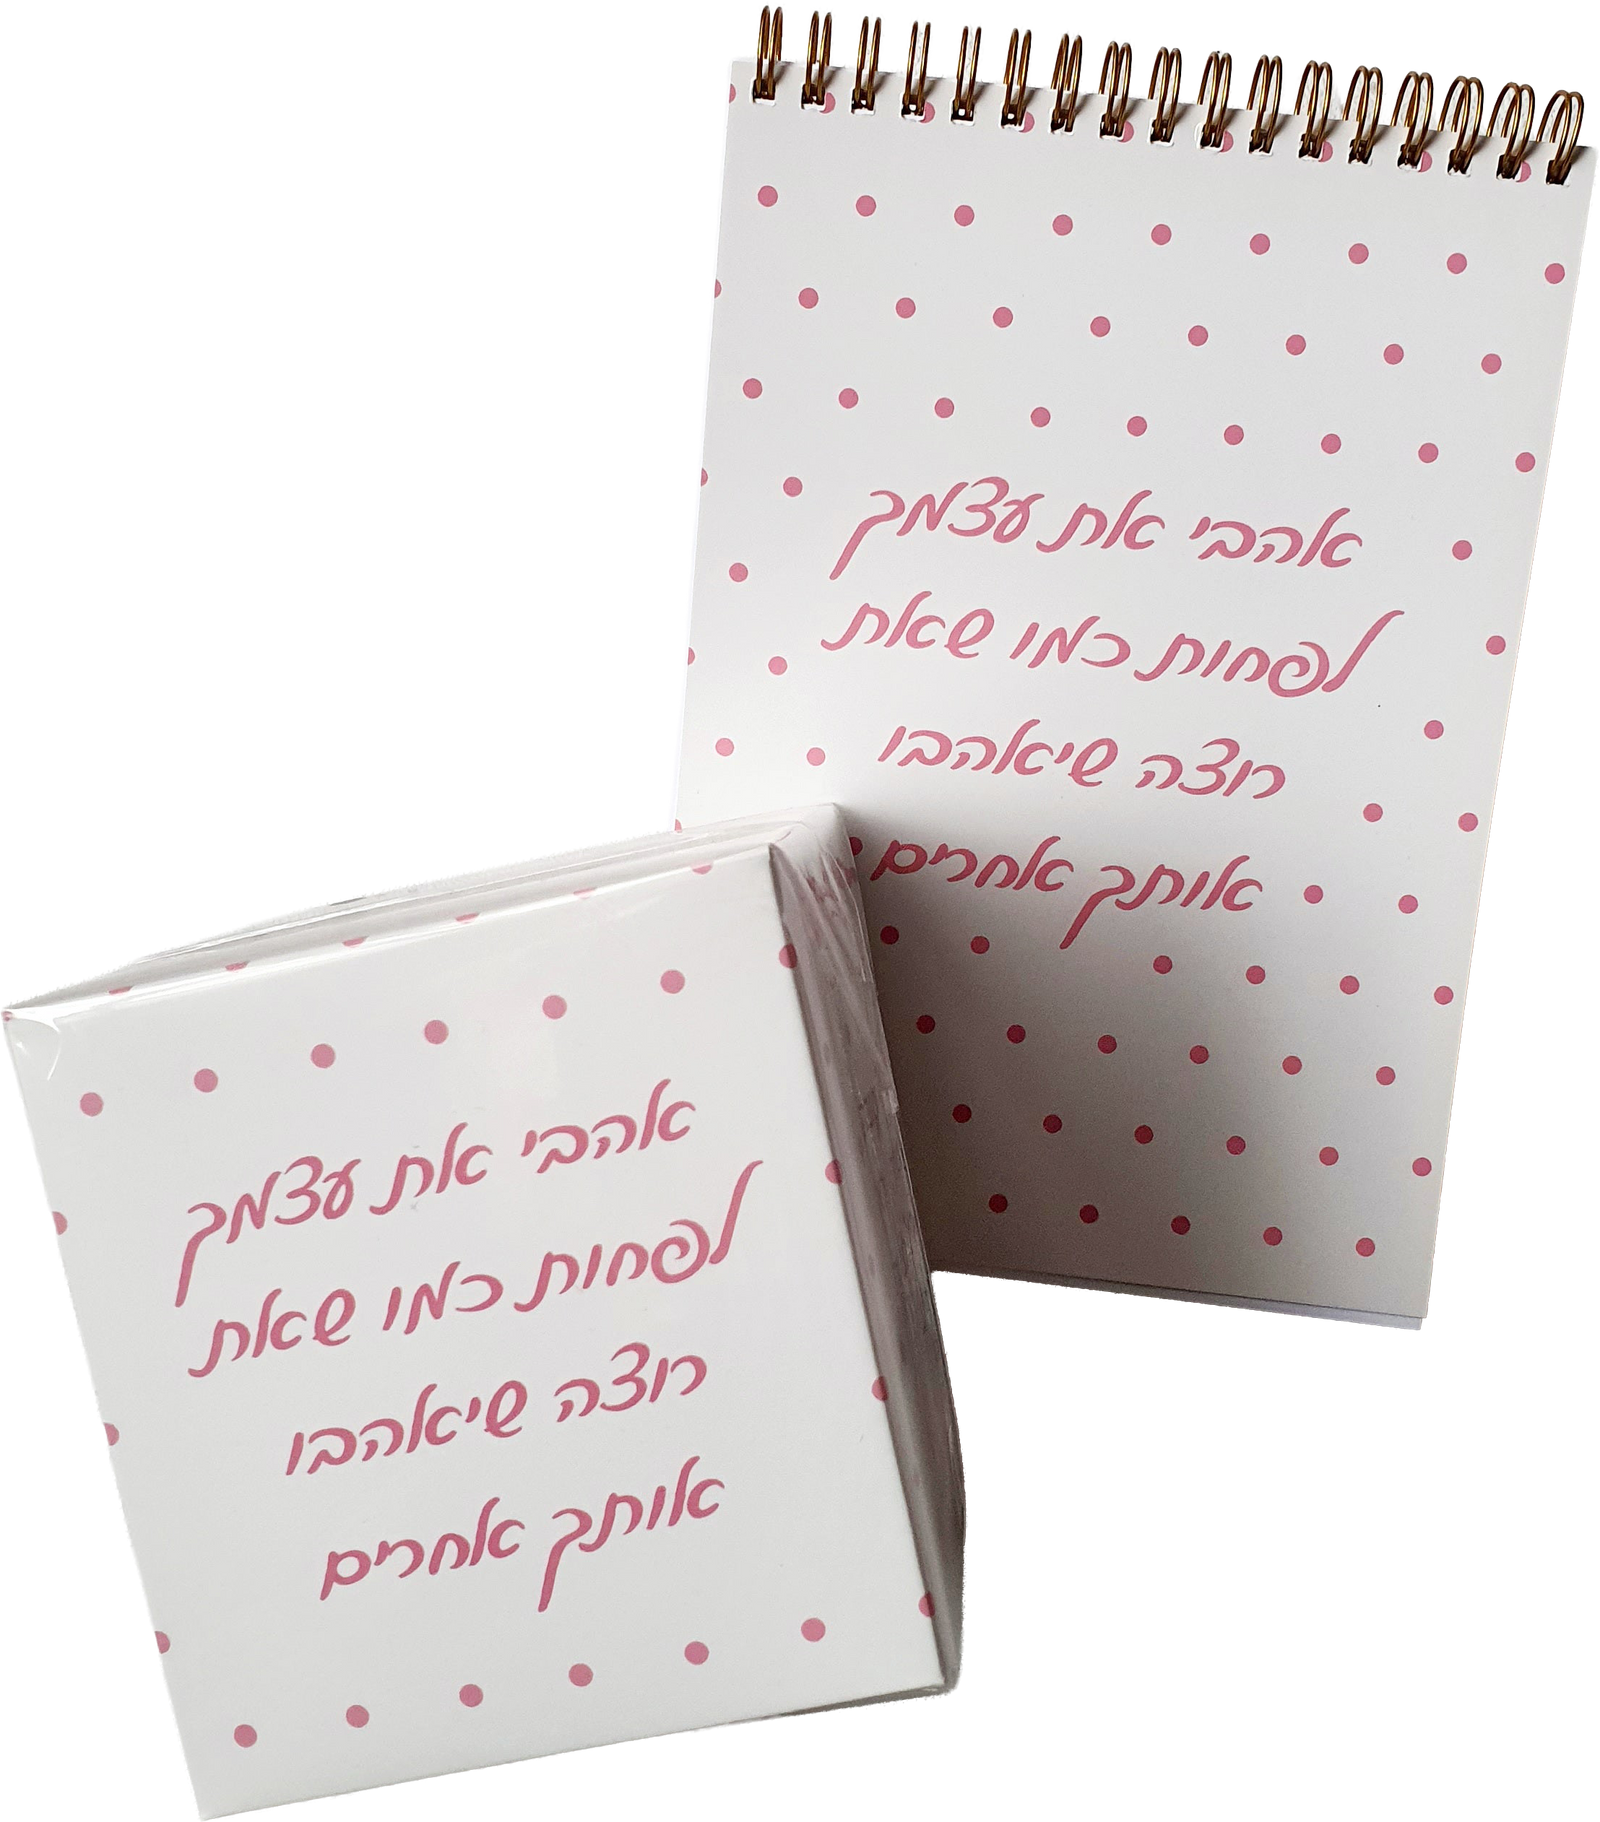 אהבי את עצמך
לפחות כמו שאת
רוצה שיאהבו
אותך אחרים
אהבי את עצמך
לפחות כמו שאת
רוצה שיאהבו
אותך אחרים